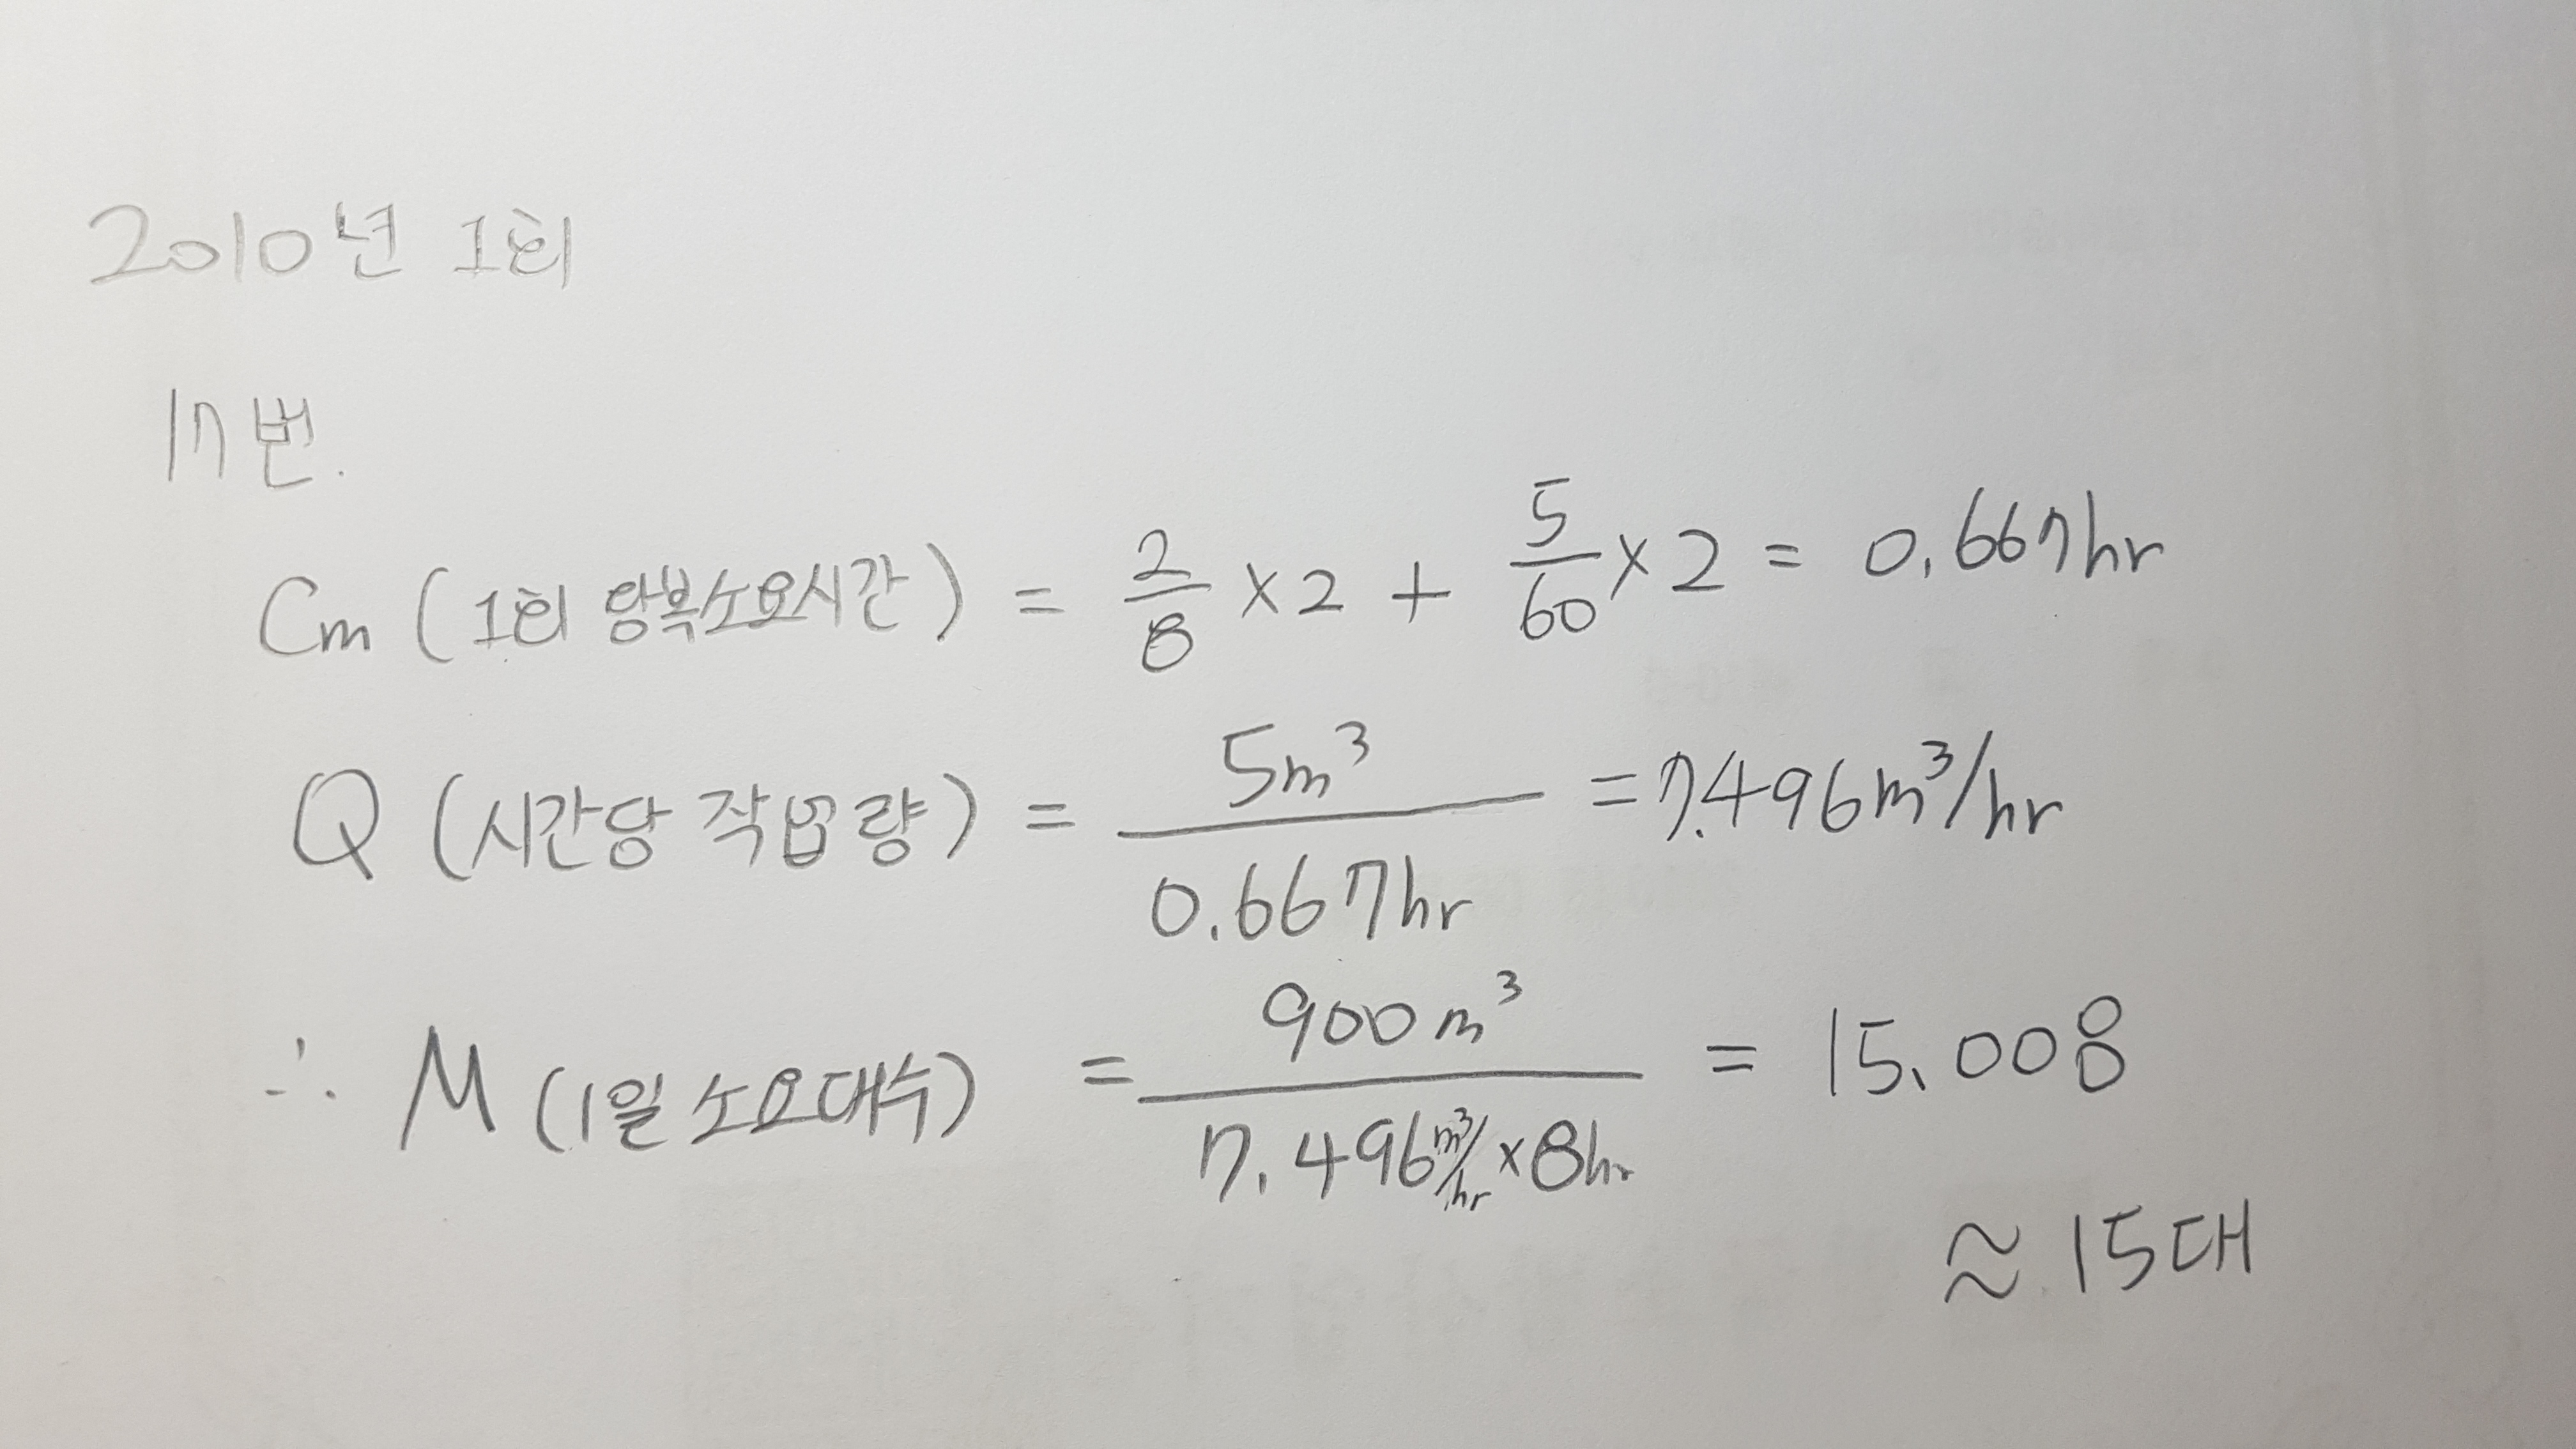 2010년 1회
17번.
Cm (1회 왕복소요시간) = 2/8 × 2 + 5/60 × 2 = 0.667hr
Q (시간당 작업량) = 5m³ / 0.667hr = 7.496m³/hr
∴ M (1일 소요대수) = 900m³ / 7.496m³/hr × 8hr = 15.008
≈ 15대